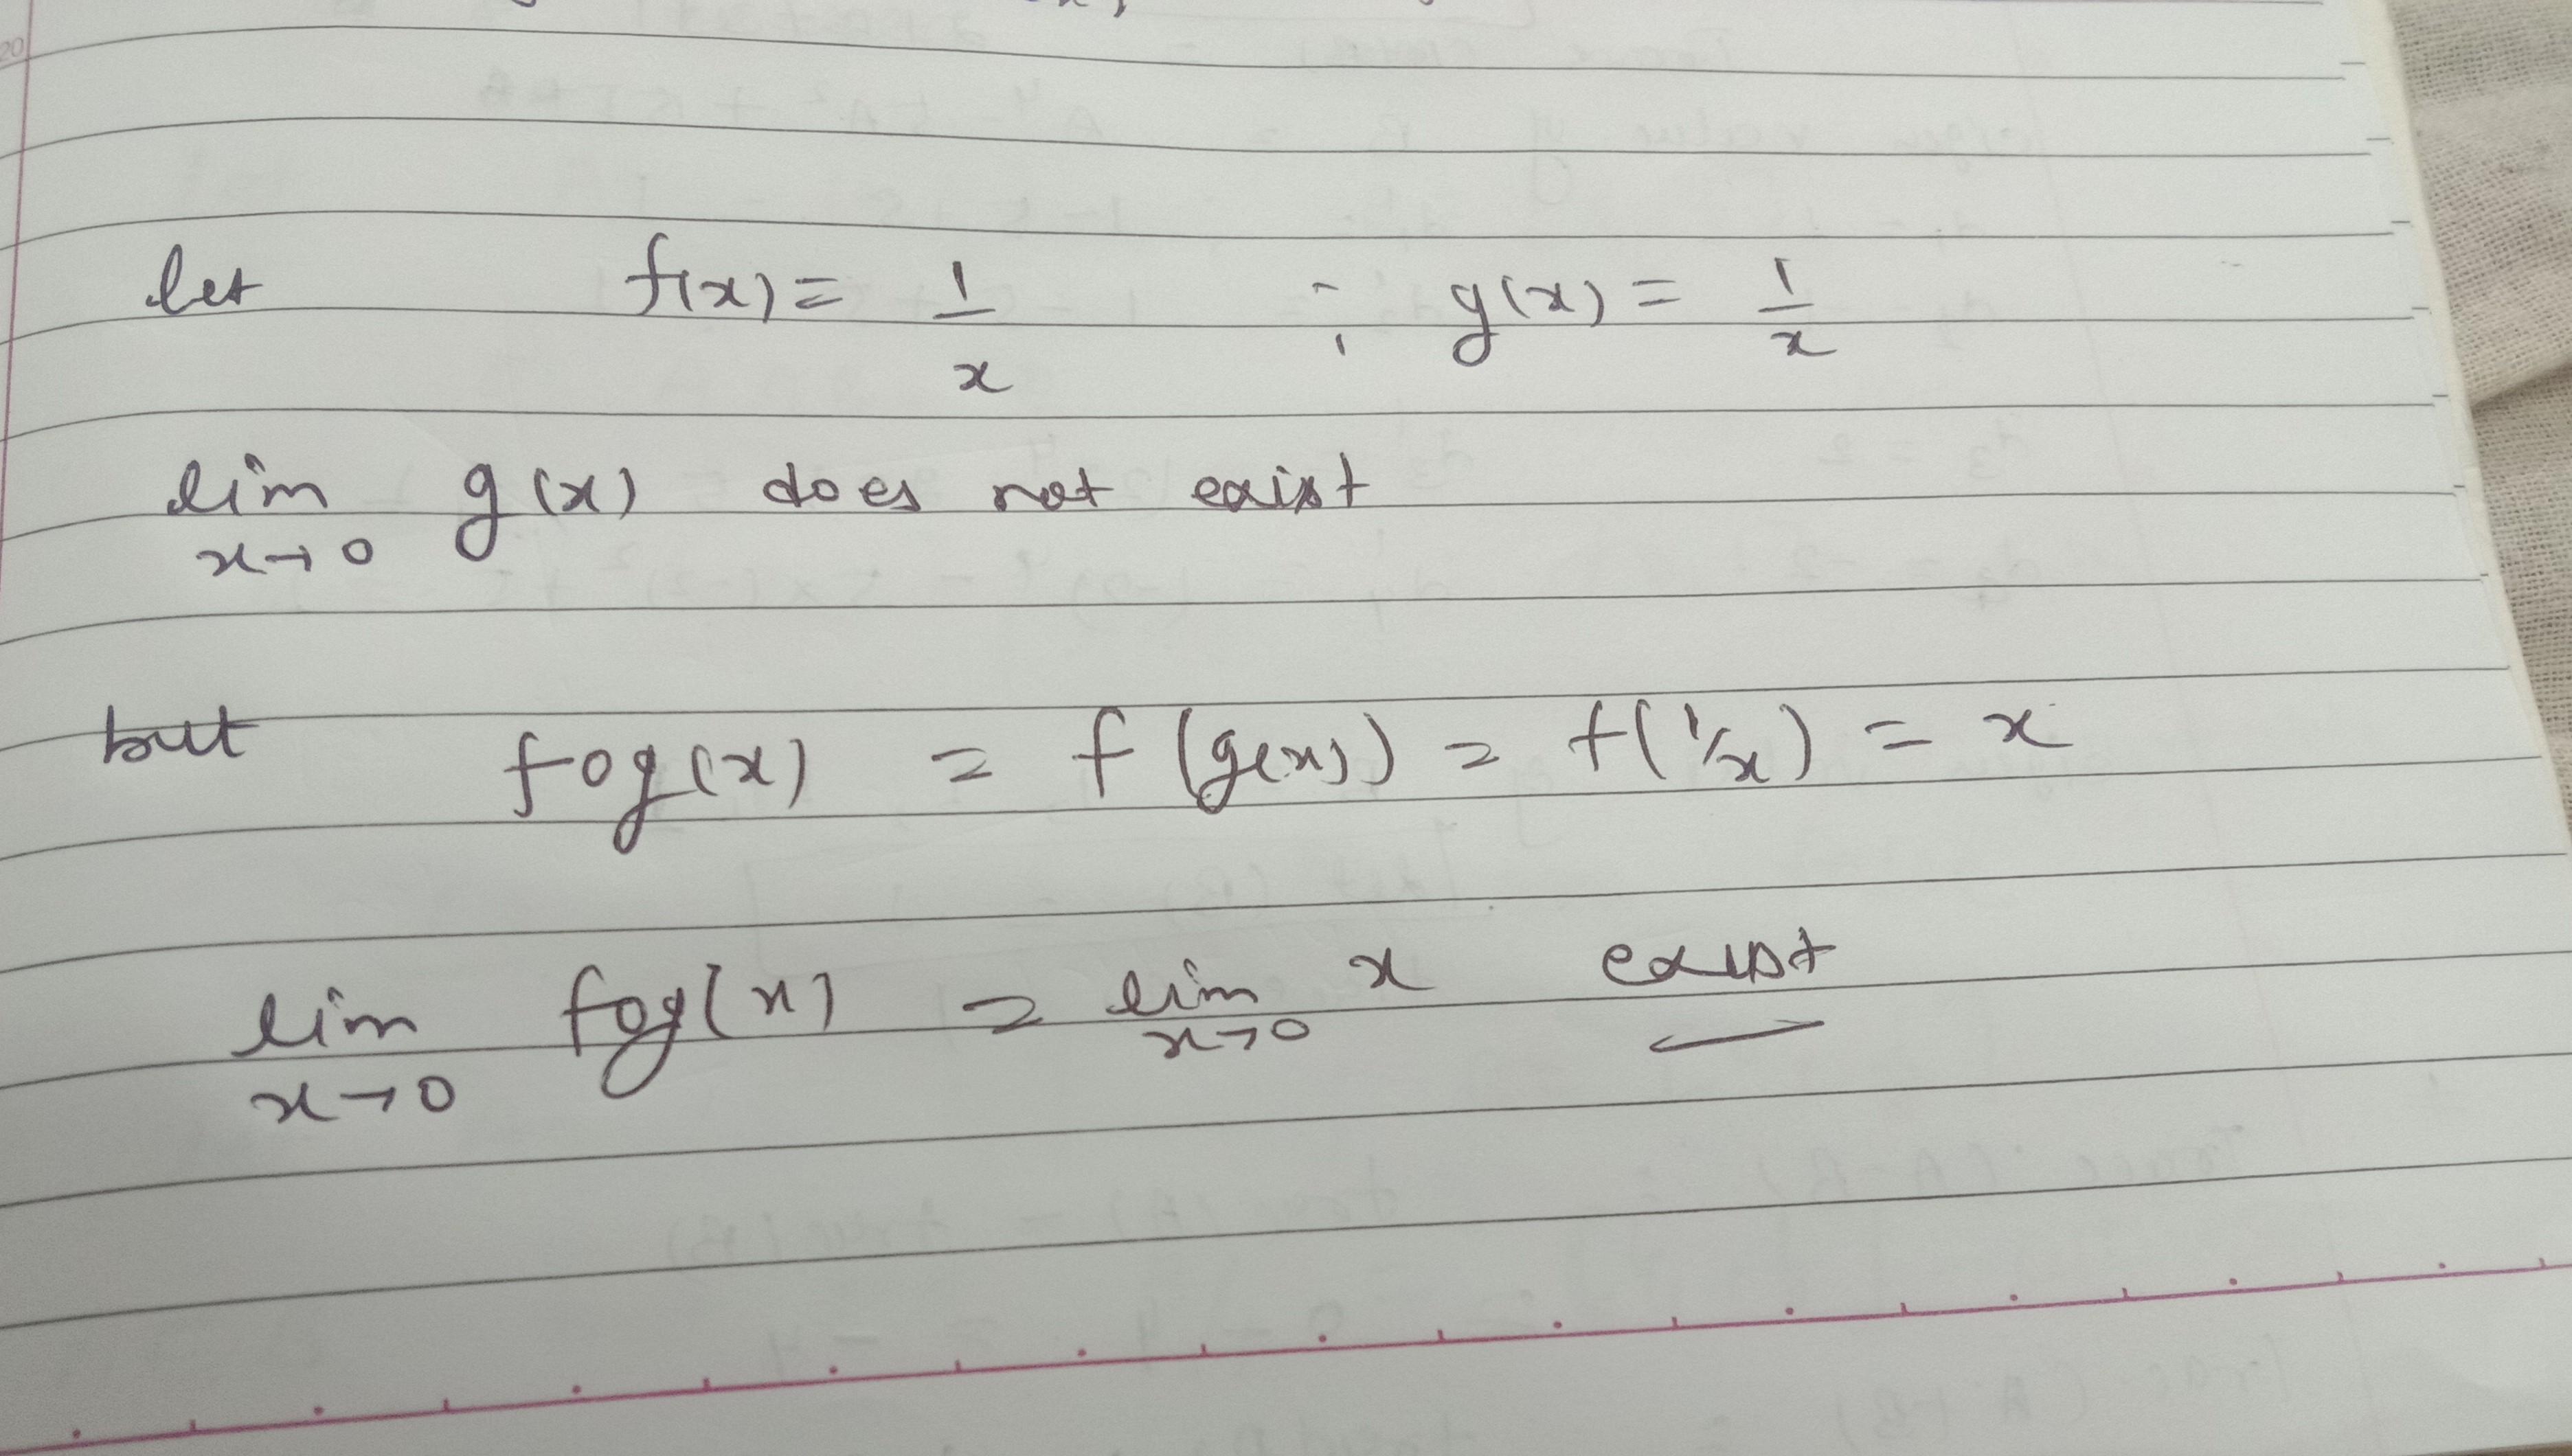 let f(x) = 1/x ; g(x) = 1/x
lim x→0 g(x) does not exist
but fog(x) = f(g(x)) = f(1/x) = x
lim x→0 fog(x) = lim x→0 x exist